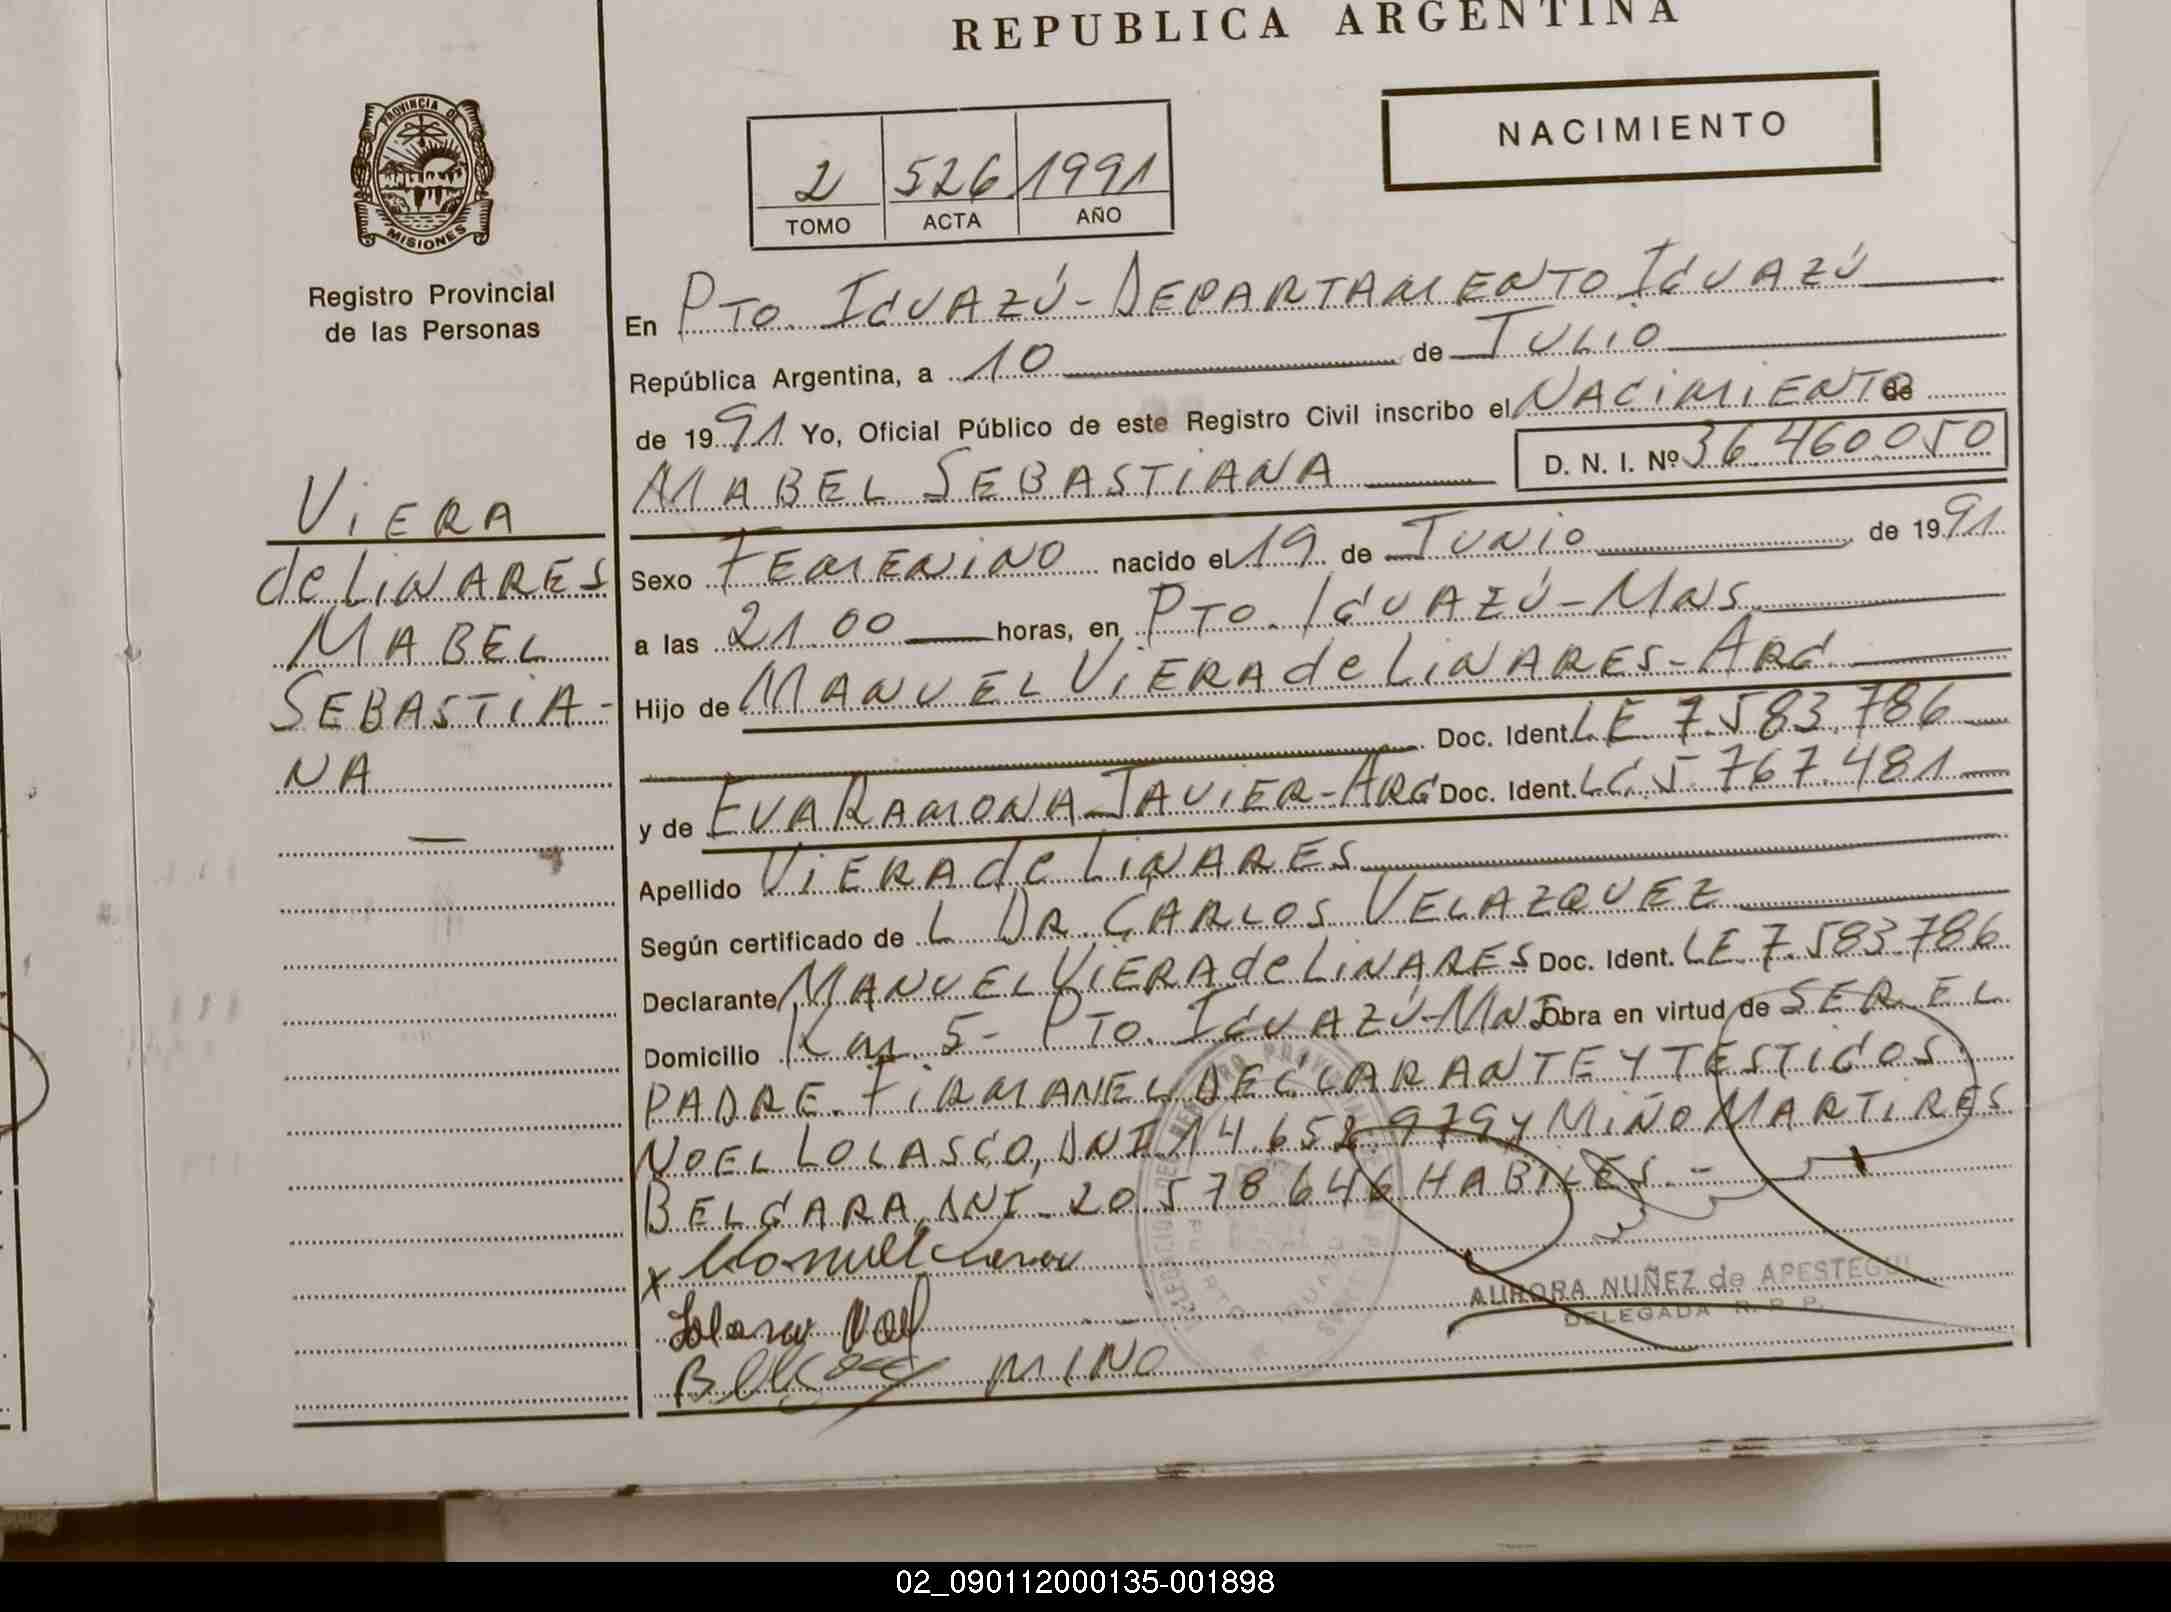 REPUBLICA ARGENTINA
PROVINCIA DE
MISIONES
Registro Provincial
de las Personas
NACIMIENTO
2 526 1991
TOMO ACTA AÑO
VIERA
de LINARES
MABEL
SEBASTIA-
NA
En PTO. IGUAZÚ-DEPARTAMENTO IGUAZÚ
República Argentina, a 10 de JULIO
de 1991 Yo, Oficial Público de este Registro Civil inscribo el NACIMIENTO de
MABEL SEBASTIANA D. N. I. Nº 36.460.050
Sexo FEMENINO nacido el 19 de JUNIO de 1991
a las 21.00 horas, en PTO. IGUAZÚ-MNS
Hijo de MANUEL VIERA de LINARES-ARG
Doc. Ident. LE.7.583.786
y de EVA RAMONA JAVIER-ARG Doc. Ident. LC.5.767.481
Apellido VIERA de LINARES
Según certificado de L DR. CARLOS VELAZQUEZ
Declarante MANUEL VIERA de LINARES Doc. Ident. LE.7.583.786
Domicilio Km 5- PTO. IGUAZÚ-MNS Obra en virtud de SER EL
PADRE. FIRMAN EL DECLARANTE Y TESTIGOS
NOEL LOLASCO, DNI 14.652.979 y MIÑO MARTIRES
BELGARA, DNI. 20.578.646 HABILES.-
x Manuel Viera
Noel
MINO
AURORA NUÑEZ de APESTEGUI
DELEGADA R. P. P.
02_090112000135-001898